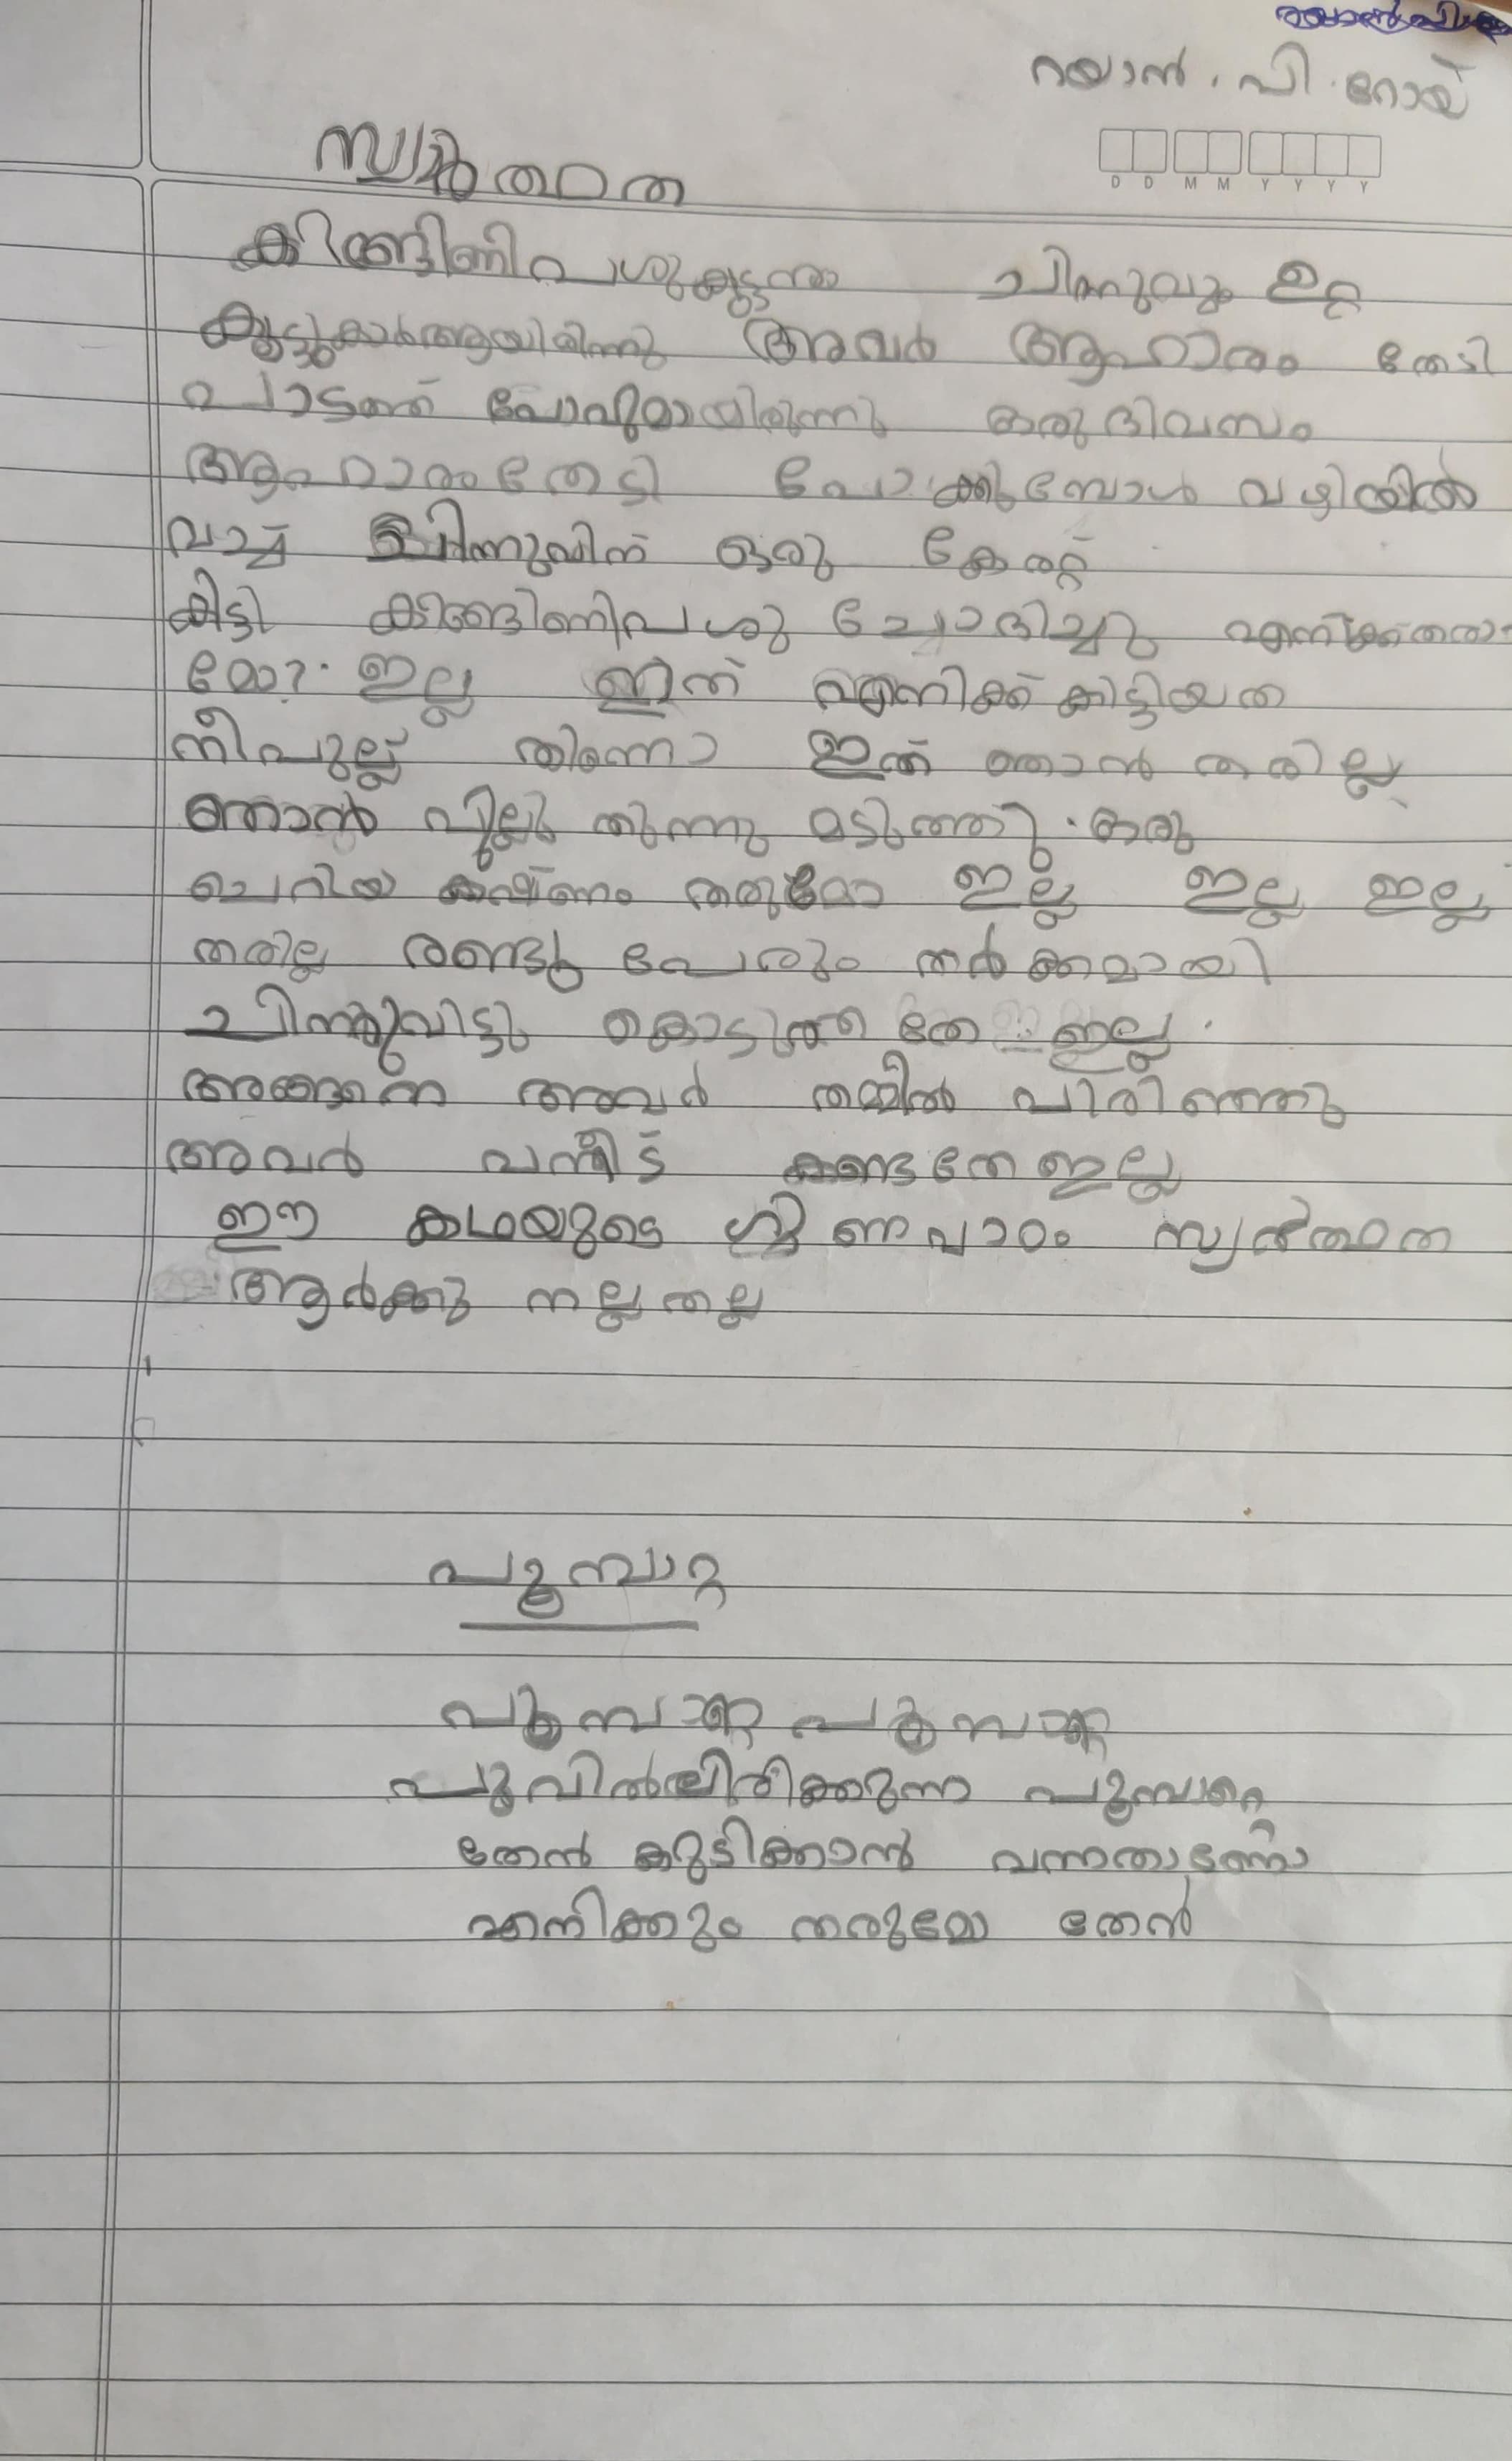 റയാൻ . പി . റോയ്
സ്വർത്ഥത
കിങ്ങിണിപശുകുട്ടനും ചിന്നുവും ഉറ്റ
കൂട്ടുകാർആയിരിന്നു അവർ ആഹാരം തേടി
പാടത്ത് പോവുമായിരുന്നു ഒരുദിവസം
ആഹാരംതേടി പോക്കുമ്പോൾ വഴിയിൽ
വാച്ച് ചിന്നുവിന് ഒരു കേരറ്റ്
കിട്ടി കിങ്ങിണിപശു ചോദിച്ചു എനിക്കുതരാ
മോ? ഇല്ല ഇത് എനിക്ക് കിട്ടിയത
നീപുല്ല് തിന്നോ ഇത് ഞാൻ തരില്ല
ഞാൻ പുല്ലു തുന്നു മടുത്തു . ഒരു
ചെറിയ കഷ്ണം തരുമോ ഇല്ല ഇല്ല ഇല്ല
തരില്ല രണ്ടു പേരും തർക്കമായി
ചിന്നുവിട്ടു കൊടുത്ത തേ ഇല്ല .
അങ്ങനെ അവർ തമ്മിൽ പിരിഞ്ഞു
അവർ പന്നീട് കണ്ടതേഇല്ല
ഈ കഥയുടെ ഗുണപാഠം സ്വർത്ഥത
ആർക്കു നല്ലതല്ല
പൂമ്പാറ്റ
പൂമ്പാറ്റ പൂമ്പാറ്റ
പുവിൽലിരിക്കുന്ന പൂമ്പാറ്റെ
തേൻ കുടിക്കാൻ വന്നതാണോ
എനിക്കും തരുമോ തേൻ